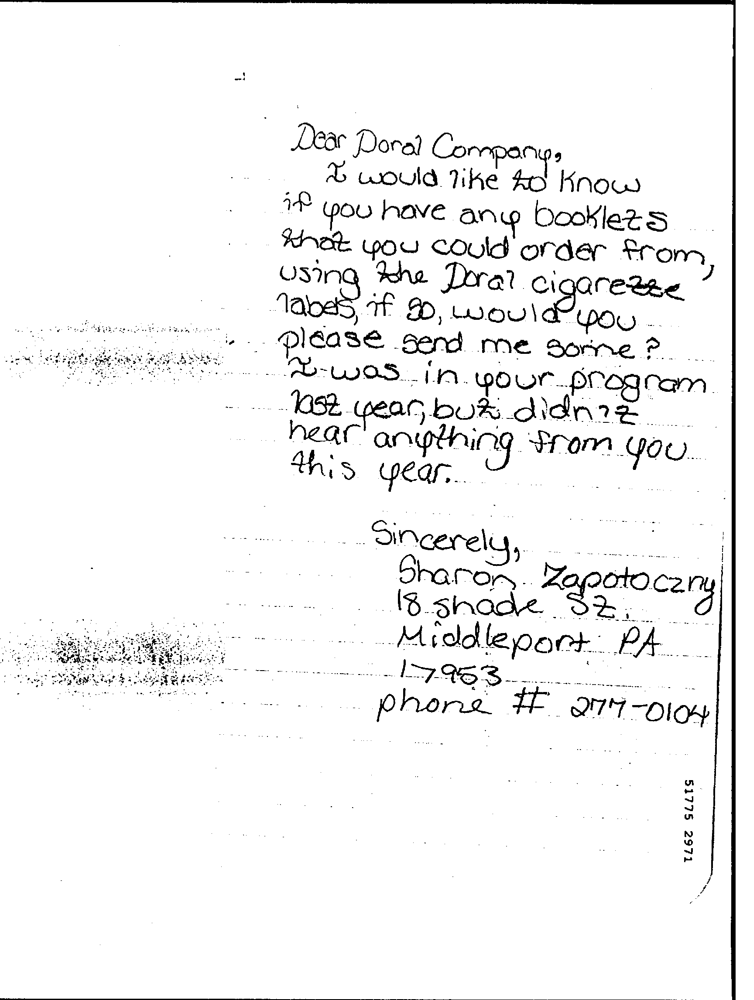 Dear Doral Company,
I would like to know
if you have any booklets
that you could order from,
using the Doral cigarette
labels, if so, would you
please send me some?
I was in your program
last year, but didn't
hear anything from you
this year.
Sincerely,
Sharon Zapotoczny
18 shade St.
Middleport PA
17953
phone # 277-0104
51775 2971